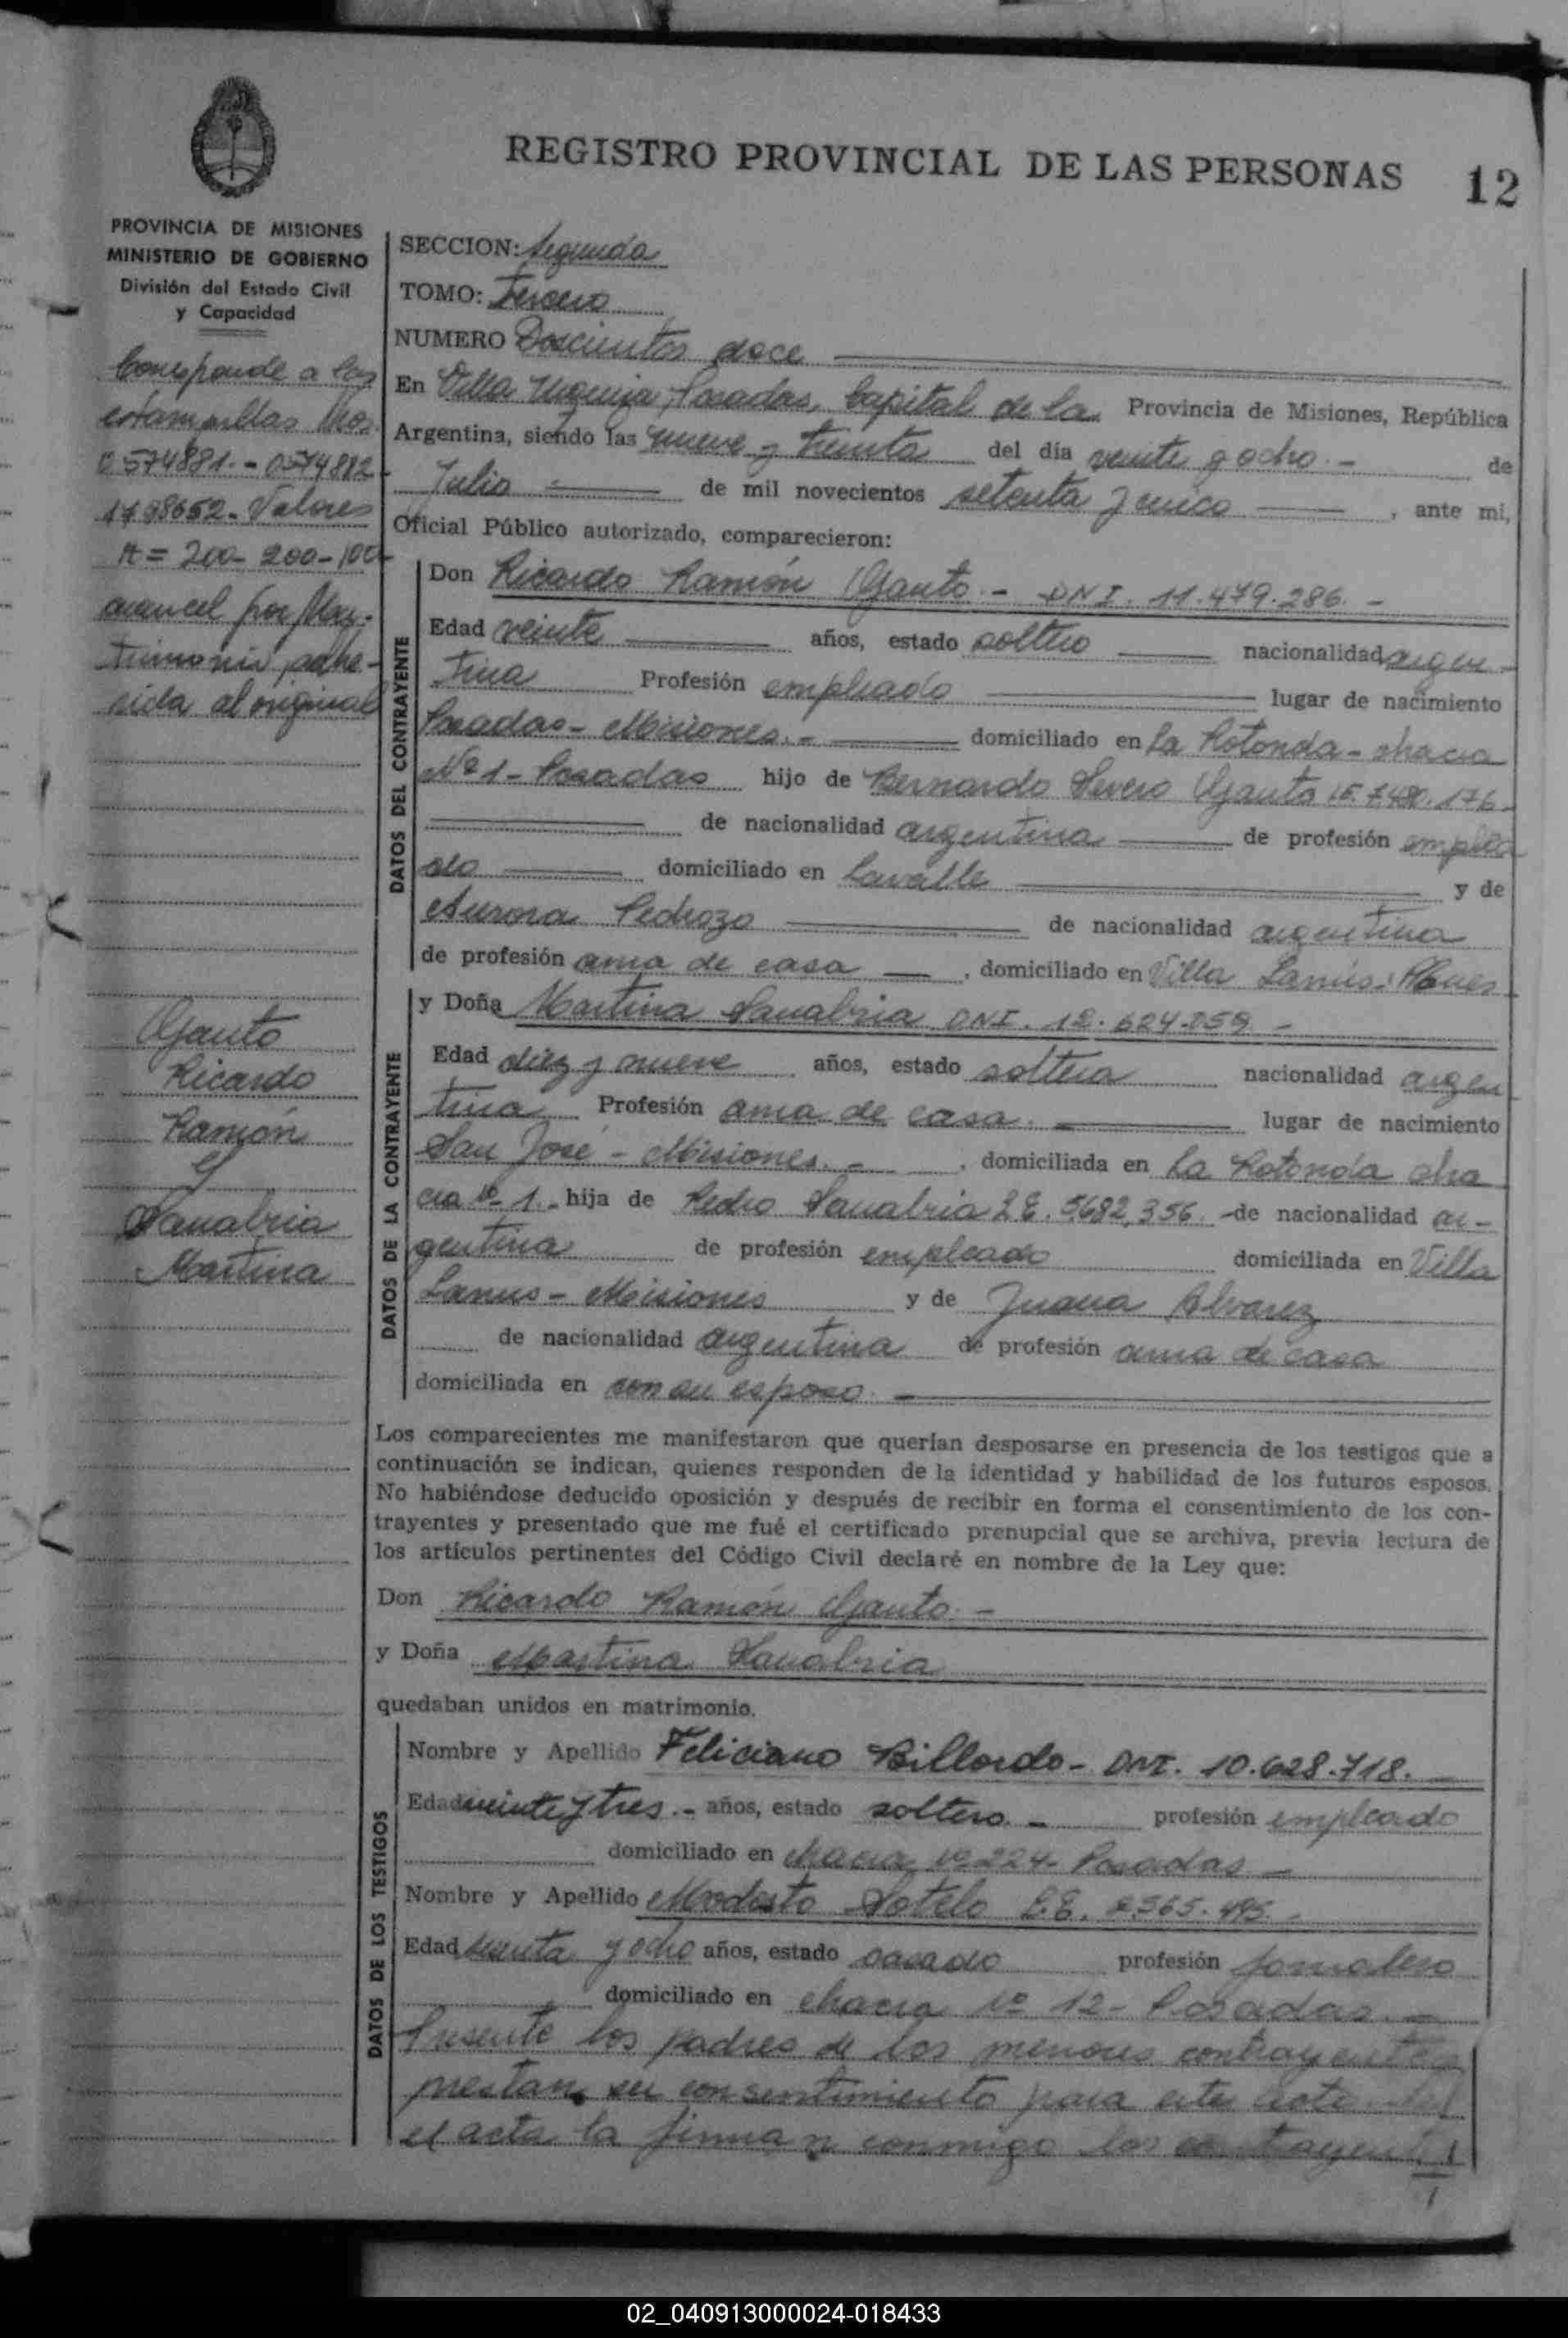 REGISTRO PROVINCIAL DE LAS PERSONAS 12
PROVINCIA DE MISIONES
MINISTERIO DE GOBIERNO
División del Estado Civil
y Capacidad
Corresponde a las
estampillas Nos.
0574881.- 0574882-
1798652- Valores
= 200- 200-100-
arancel por Ma-
trimonio, adhe-
rida al original
Gauto
Ricardo
Ramón
y
Sanabria
Martina
SECCION: Segunda
TOMO: Tercero
NUMERO Doscientos doce
En Villa Urquiza, Posadas, Capital de la Provincia de Misiones, República
Argentina, siendo las nueve y treinta del día veinte y ocho.- de
Julio de mil novecientos setenta y cinco , ante mi,
Oficial Público autorizado, comparecieron:
DATOS DEL CONTRAYENTE
Don Ricardo Ramón Gauto.- DNI. 11.479.286.-
Edad veinte años, estado soltero nacionalidad argen-
tina Profesión empleado lugar de nacimiento
Posadas- Misiones.- domiciliado en La Rotonda- chacra
Nº 1- Posadas hijo de Bernardo Severo Gauto LE. 176-
de nacionalidad argentina de profesión emplea
do domiciliado en Lavalle y de
Aurora Pedrozo de nacionalidad argentina
de profesión ama de casa , domiciliado en Villa Lanús-
DATOS DE LA CONTRAYENTE
y Doña Martina Sanabria DNI. 12.624.059.-
Edad diez y nueve años, estado soltera nacionalidad argen
tina Profesión ama de casa. lugar de nacimiento
San José - Misiones.- , domiciliada en La Rotonda cha
cra Nº 1.- hija de Pedro Sanabria L.E. 5.682.356.- de nacionalidad ar-
gentina de profesión empleado domiciliada en Villa
Lanus- Misiones y de Juana Alvarez
de nacionalidad argentina de profesión ama de casa
domiciliada en con su esposo.-
Los comparecientes me manifestaron que querían desposarse en presencia de los testigos que a
continuación se indican, quienes responden de la identidad y habilidad de los futuros esposos.
No habiéndose deducido oposición y después de recibir en forma el consentimiento de los con-
trayentes y presentado que me fué el certificado prenupcial que se archiva, previa lectura de
los artículos pertinentes del Código Civil declaré en nombre de la Ley que:
Don Ricardo Ramón Gauto.-
y Doña Martina Sanabria
quedaban unidos en matrimonio.
DATOS DE LOS TESTIGOS
Nombre y Apellido Feliciano Billordo- DNI. 10.628.718.-
Edad veinte y tres.- años, estado soltero.- profesión empleado
domiciliado en chacra Nº 224- Posadas-
Nombre y Apellido Modesto Sotelo L.E. 2.565.495.-
Edad sesenta y ocho años, estado casado profesión jornalero
domiciliado en chacra Nº 12- Posadas.-
Presente los padres de los menores contrayentes
prestan su consentimiento para este acto.
el acta la firman conmigo los contrayentes
02_040913000024-018433